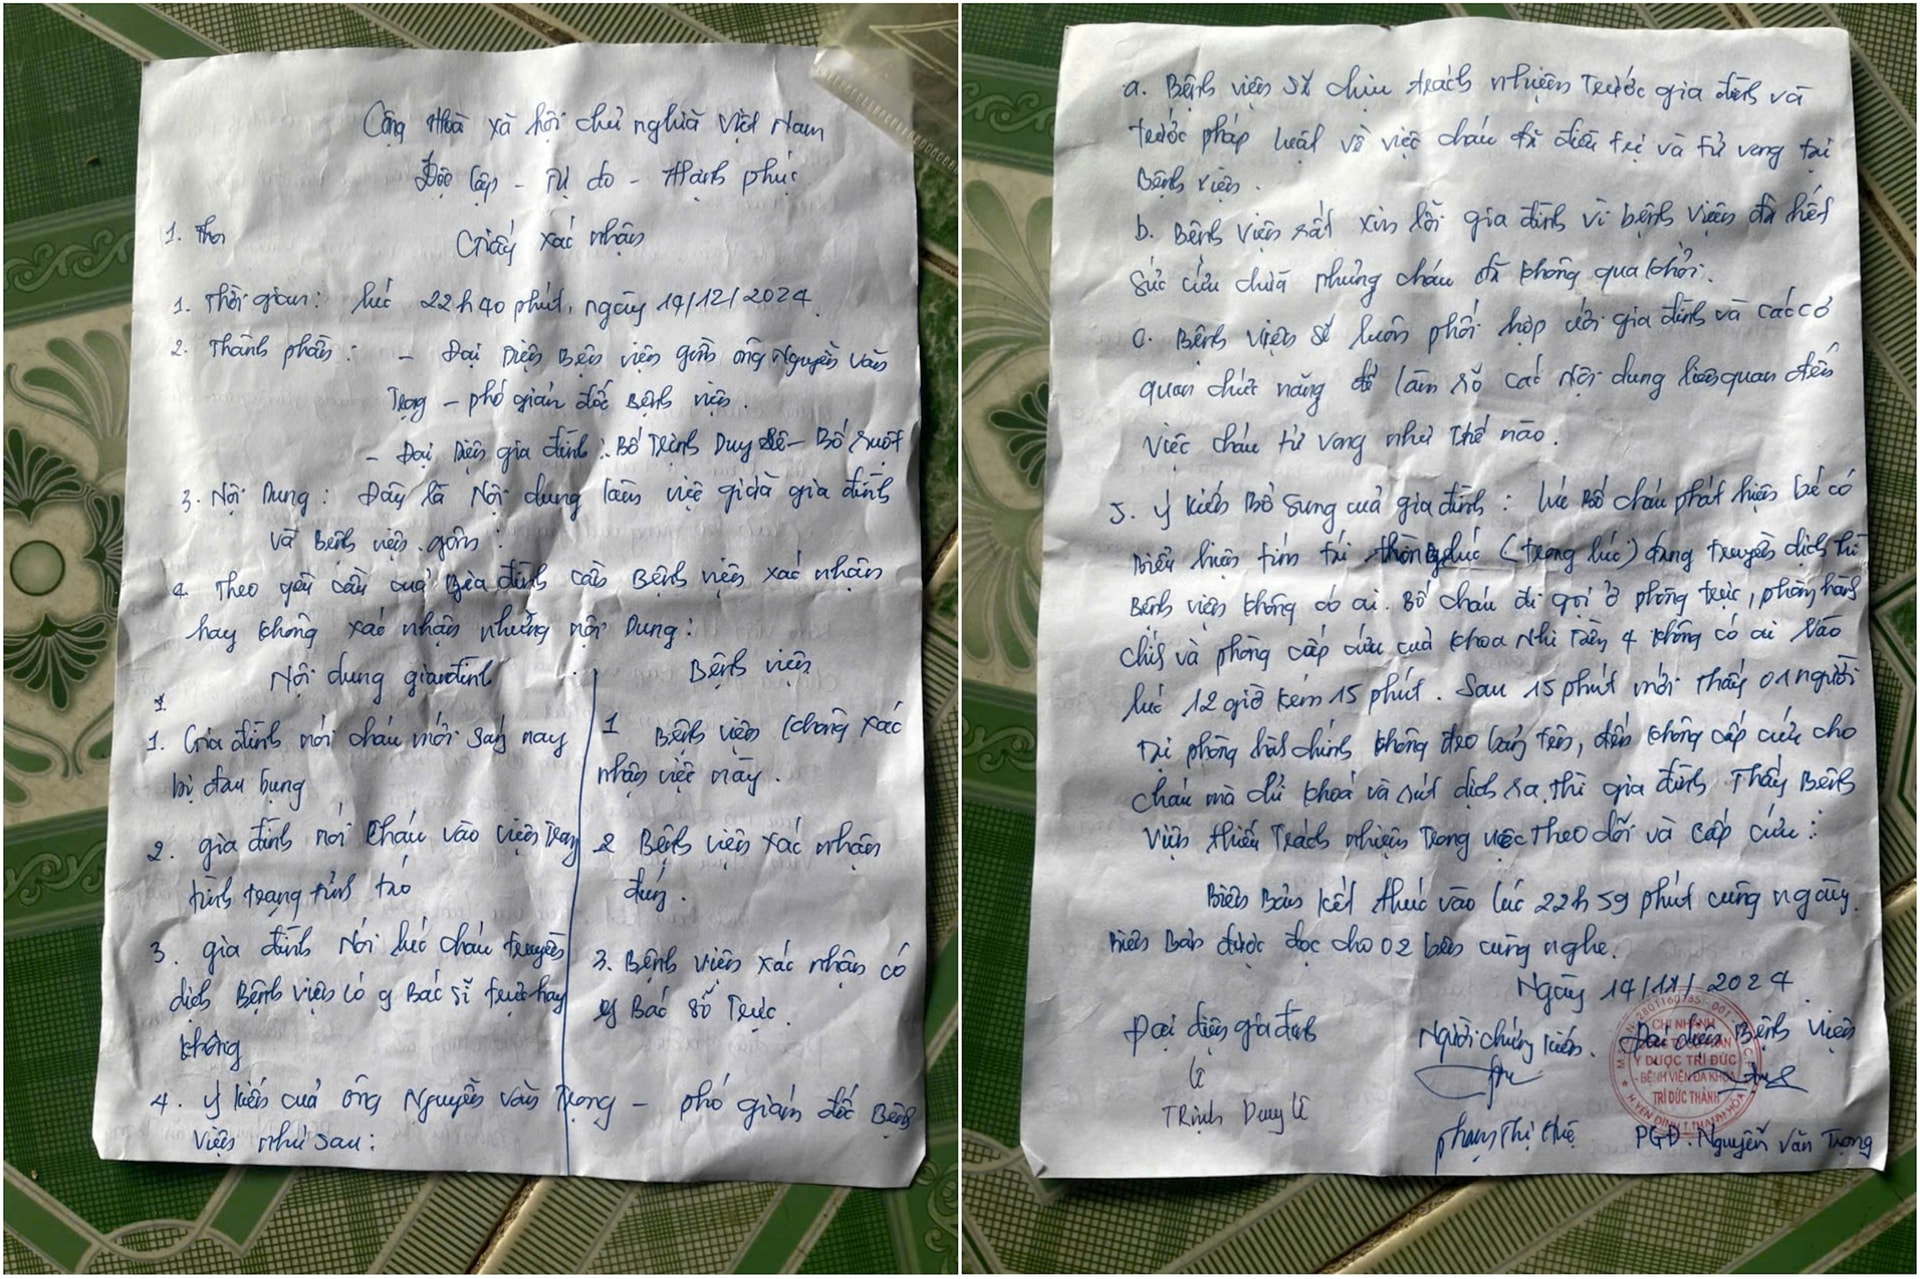 Cộng Hoà xã hội chủ nghĩa Việt Nam
Độc lập - Tự do - Hạnh phúc
1. Thời
Giấy xác nhận
1. Thời gian: lúc 22h40 phút, ngày 14/12/2024.
2. Thành phần: - Đại Diện Bệnh viện gồm ông Nguyễn Văn
Trọng - phó giám đốc Bệnh viện.
- Đại Diện gia đình: Bố Trịnh Duy Lê - Bố ruột
3. Nội Dung: Đây là Nội dung làm việc giữa gia đình
và Bệnh viện gồm:
4. Theo yêu cầu của Gia đình cần Bệnh viện xác nhận
hay không xác nhận những nội Dung:
Nội dung gia đình
1. Gia đình nói cháu mới sáng nay
bị đau bụng
2. gia đình nói Cháu vào viện trong
tình trạng tỉnh táo
3. gia đình Nói lúc cháu truyền
dịch Bệnh viện có Bác sĩ trực hay
không
Bệnh viện
1 Bệnh viện không xác
nhận việc này.
2 Bệnh viện xác nhận
đúng.
3. Bệnh viện xác nhận có
Bác sĩ Trực.
4. Ý kiến của ông Nguyễn Văn Trọng - phó giám đốc Bệnh
Viện như sau:
a. Bệnh viện sẽ chịu trách nhiệm Trước gia đình và
trước pháp luật về việc cháu đã điều trị và tử vong tại
Bệnh viện.
b. Bệnh Viện rất xin lỗi gia đình vì bệnh viện đã hết
sức cứu chữa nhưng cháu đã không qua khỏi.
c. Bệnh viện sẽ luôn phối hợp với gia đình và các cơ
quan chức năng để làm rõ các Nội dung liên quan đến
Việc cháu tử vong như thế nào.
5. Ý kiến Bổ Sung của gia đình: lúc Bố cháu phát hiện bé có
Biểu hiện tím tái (trong lúc) đang truyền dịch thì
Bệnh viện không có ai. Bố cháu đi gọi ở phòng trực, phòng hành
chính và phòng cấp cứu của khoa Nhi Tầng 4 không có ai Vào
lúc 12 giờ kém 15 phút. Sau 15 phút mới Thấy 01 người
Tại phòng hành chính không đeo bảng tên, đến không cấp cứu cho
cháu mà chỉ khoá và rút dịch ra. thì gia đình Thấy Bệnh
Viện thiếu Trách nhiệm Trong việc Theo dõi và cấp cứu:
Biên Bản kết thúc vào lúc 22h59 phút cùng ngày.
Biên Bản được đọc cho 02 bên cùng nghe.
Ngày 14/11/2024.
Đại diện gia đình
Lê
Trịnh Duy Lê
Người chứng kiến.
Phạm Thị Huệ
Đại diện Bệnh viện
PGĐ. Nguyễn Văn Trọng
CHI NHÁNH
Y DƯỢC TRÍ ĐỨC
- BỆNH VIỆN ĐA KHOA
TRÍ ĐỨC THÀNH
H. YÊN ĐỊNH T. THANH HÓA